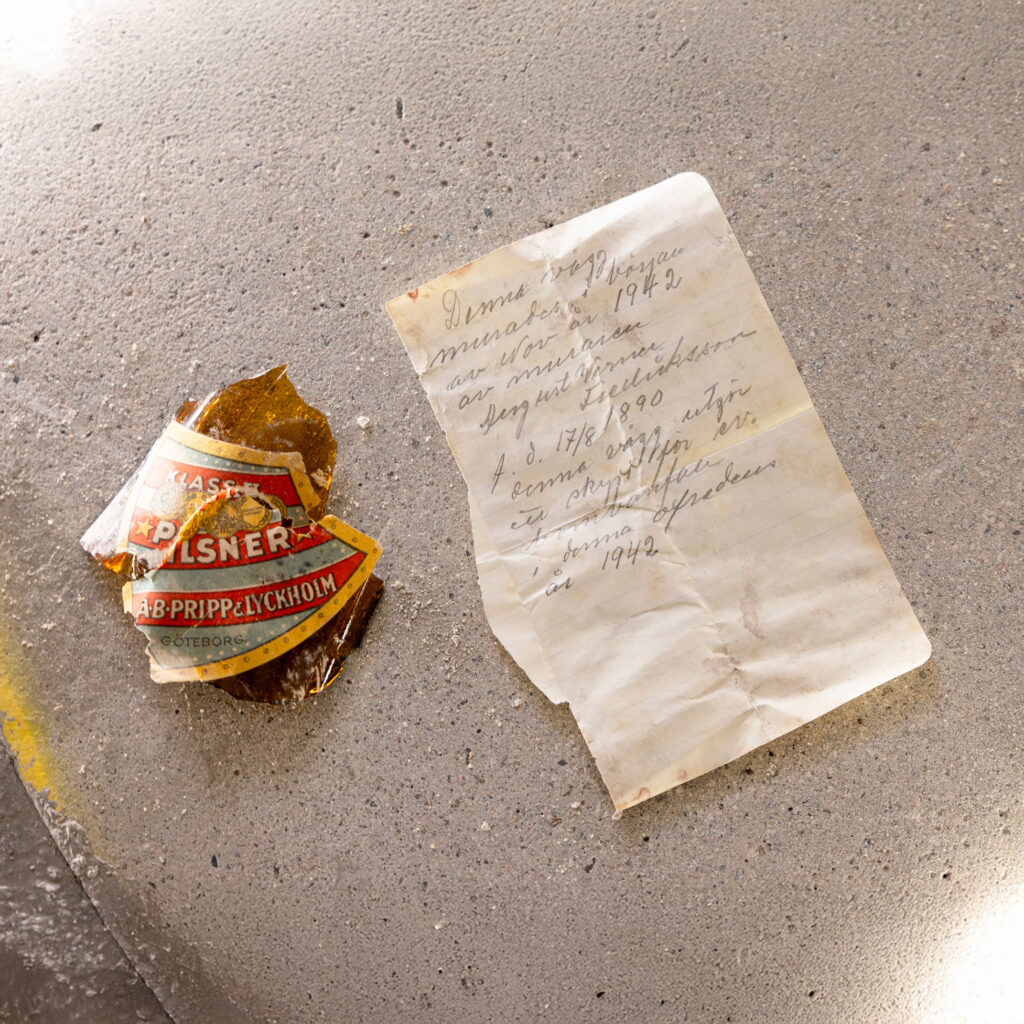 KLASS
PILSNER
A·B·PRIPP & LYCKHOLM
GÖTEBORG.
Denna vägg
murades i början
av Nov år 1942
av muraren
August Verner
Fredriksson
f. d. 17/8 1890
denna vägg utgör
ett skydd för ev.
bombanfall
i denna ofredens
år 1942